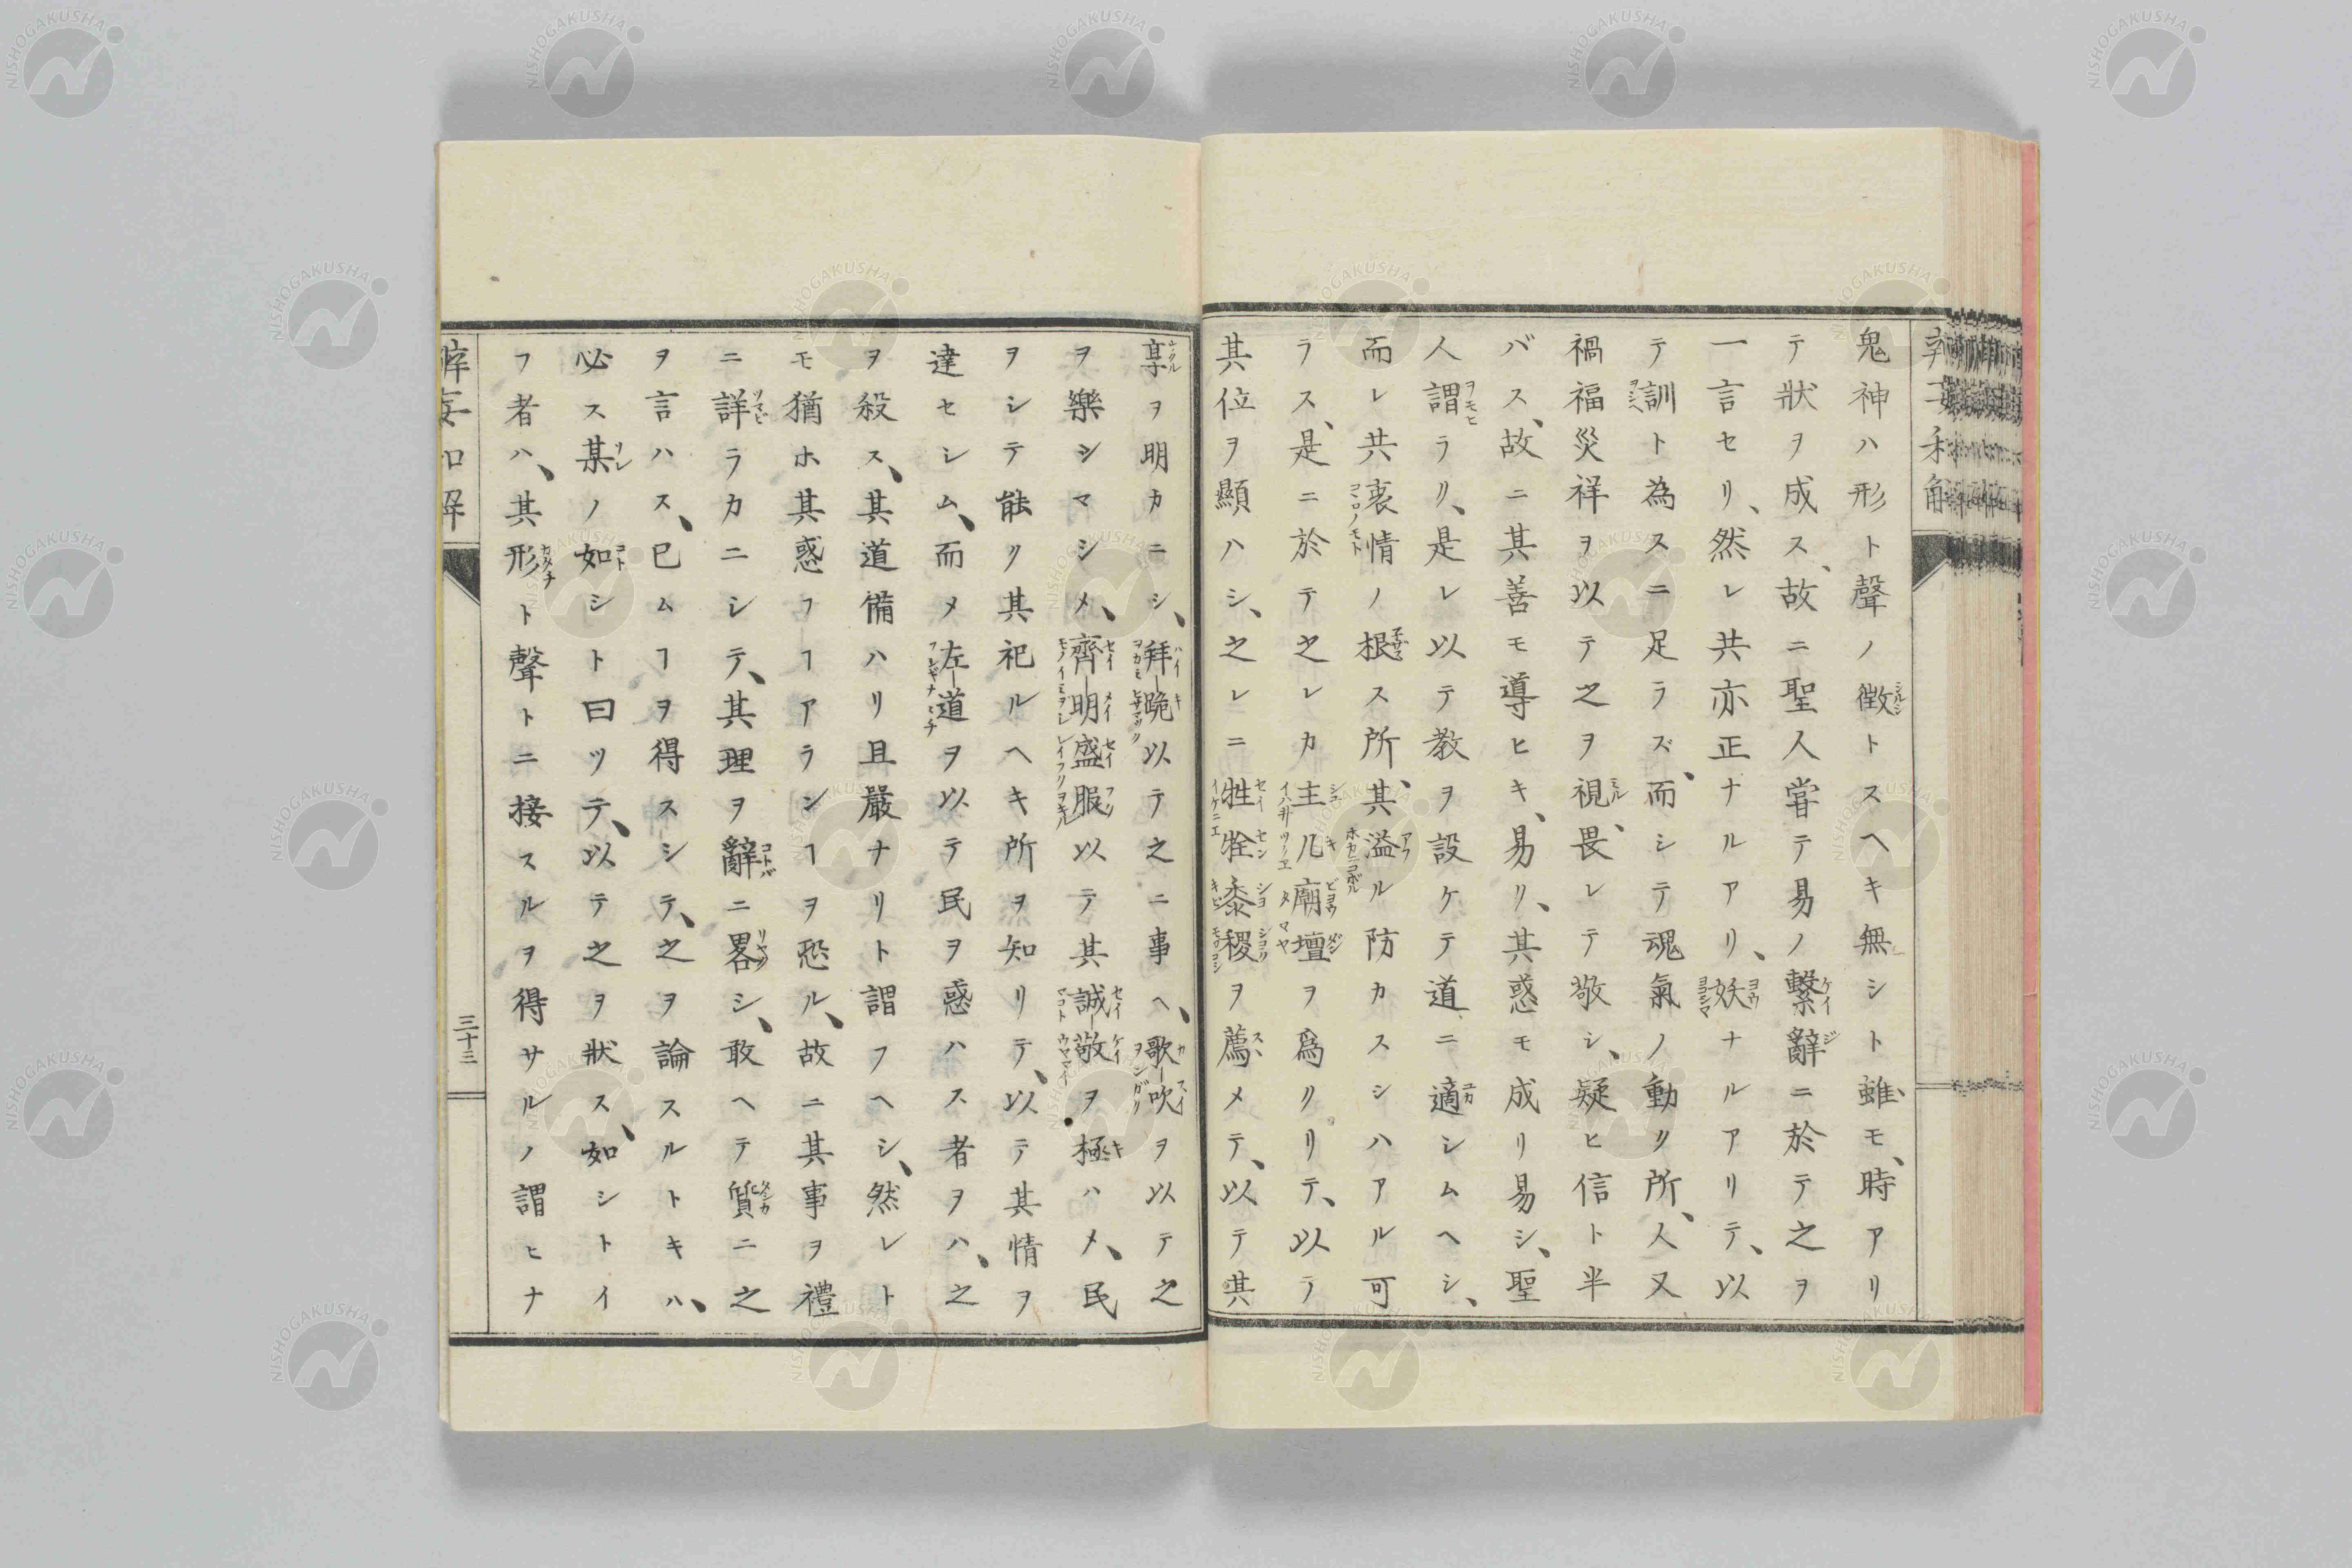 鬼神ハ形ト聲ノ徴トスヘキ無シト雖モ、時アリ
テ狀ヲ成ス、故ニ聖人甞テ易ノ繫辭ニ於テ之ヲ
一言セリ、然レ共亦正ナルアリ、妖ナルアリテ、以
テ訓ト為スニ足ラズ、而シテ魂氣ノ動ク所、人又
禍福災祥ヲ以テ之ヲ視、畏レテ敬シ、疑ヒ信ト半
バス、故ニ其善モ導ヒキ、易リ、其惑モ成リ易シ、聖
人謂ラリ、是レ以テ教ヲ設ケテ道ニ適シムヘシ、
而レ共衷情ノ根ス所、其溢ル防カスシハアル可
ラス、是ニ於テ之レカ主几廟壇ヲ爲クリテ、以テ
其位ヲ顯ハシ、之レニ牲牷黍稷ヲ薦メテ、以テ其
享ヲ明カニシ、拜跪以テ之ニ事ヘ、歌吹ヲ以テ之
ヲ樂シマシメ、齊明盛服以テ其誠敬ヲ極ハメ、民
ヲシテ能ク其祀ルヘキ所ヲ知リテ、以テ其情ヲ
達セシム、而メ左道ヲ以テ民ヲ惑ハス者ヲハ、之
ヲ殺ス、其道備ハリ且嚴ナリト謂フヘシ、然レト
モ猶ホ其惑フヿアランヿヲ恐ル、故ニ其事ヲ禮
ニ詳ラカニシテ、其理ヲ辭ニ畧シ、敢ヘテ質ニ之
ヲ言ハス、已ムヿヲ得スシテ、之ヲ論スルトキハ、
必ス某ノ如シト曰ツテ、以テ之ヲ狀ス、如シトイ
フ者ハ、其形ト聲トニ接スルヲ得サルノ謂ヒナ
三十三